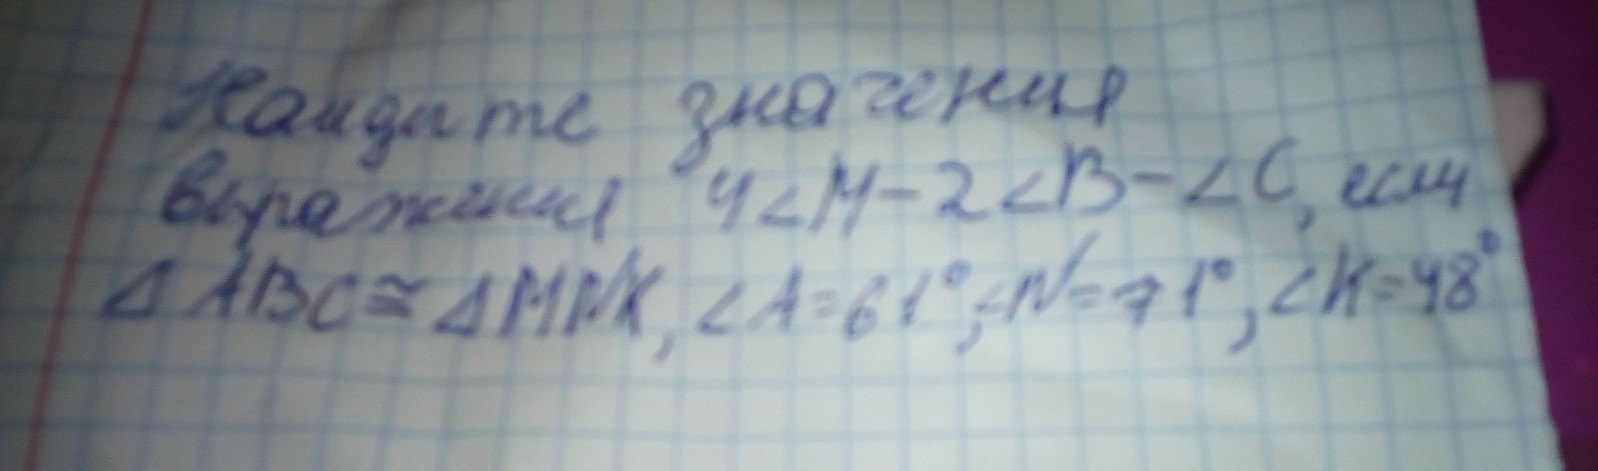 Найдите значения
выражения 4<M-2<B-<C, если
Δ ABC≅ΔMNK, <A=61°,<N=71°, <K=48°